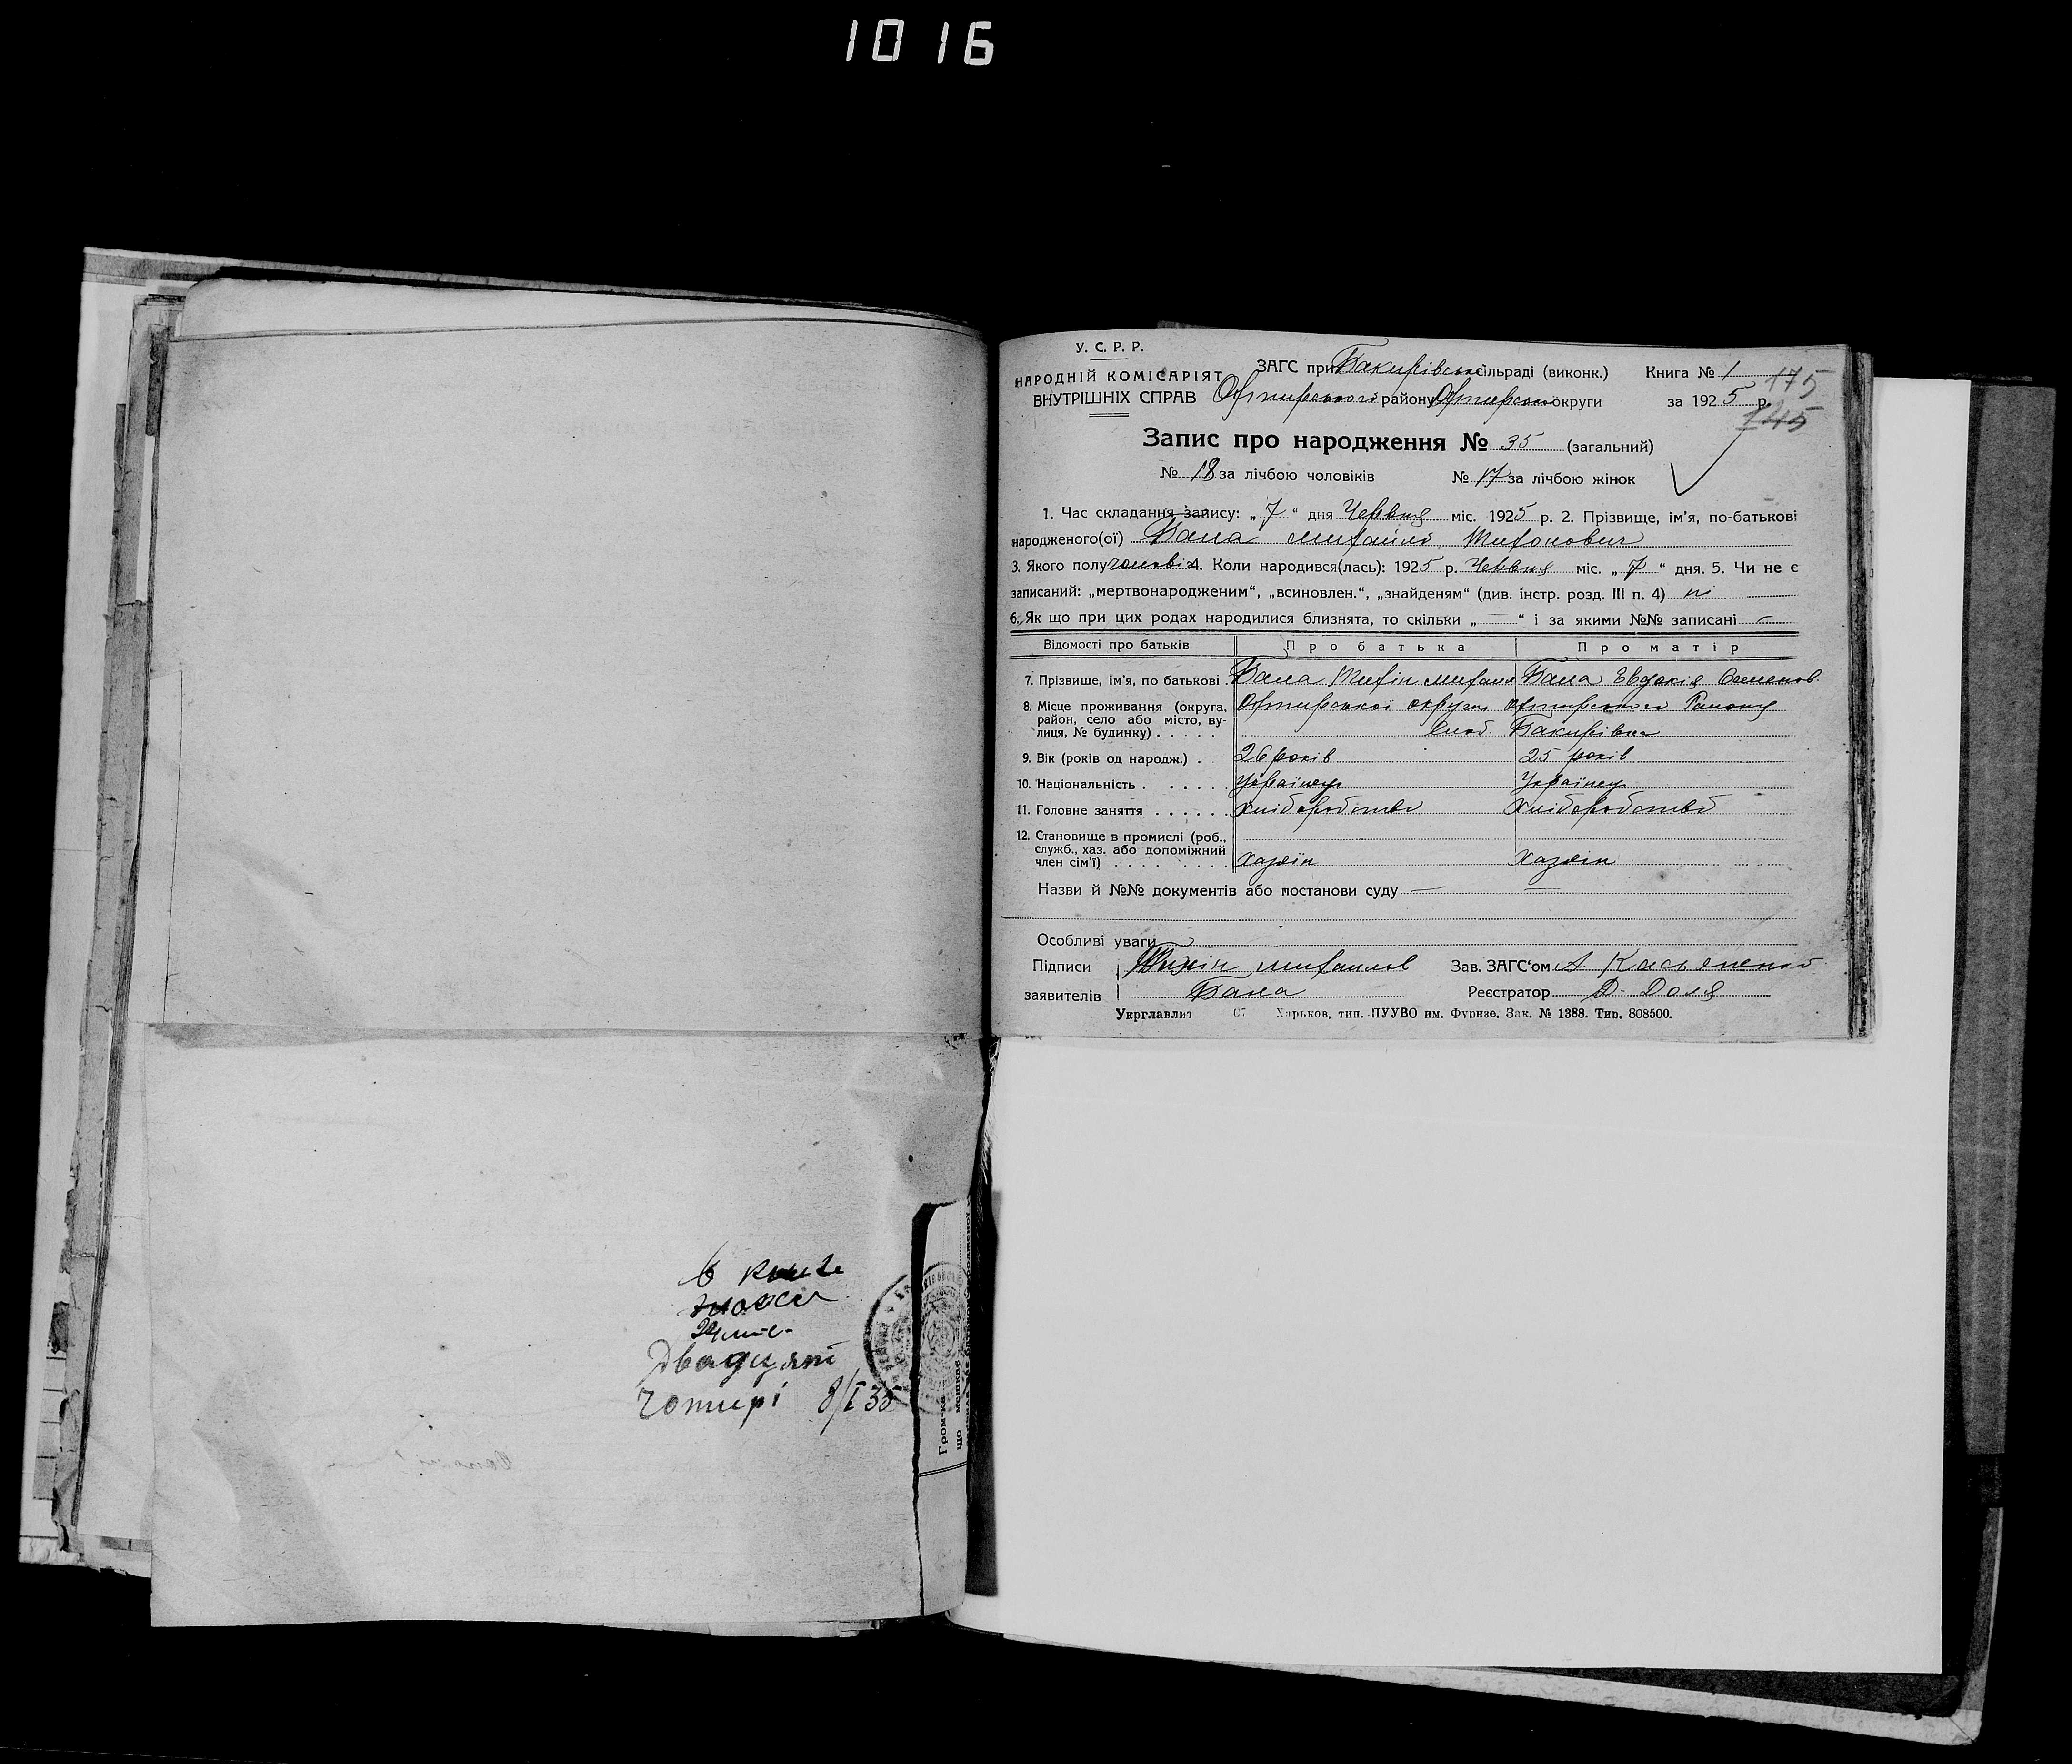 1016
У. С. Р. Р.
НАРОДНІЙ КОМІСАРІЯТ
ВНУТРІШНІХ СПРАВ
ЗАГС при Бакирівськ сільраді (виконк.) Книга № 1
175
Охтирського району Охтирської округи за 1925 р.
145
Запис про народження № 35 (загальний)
№ 18 за лічбою чоловіків № 17 за лічбою жінок
1. Час складання запису: „ 7 “ дня Червня міс. 1925 р. 2. Прізвище, ім'я, по-батькові
народженого(ої) Бала Михайло Тихонович
3. Якого полу чоловік 4. Коли народився(лась): 1925 р. Червня міс. „ 7 “ дня. 5. Чи не є
записаний: „мертвонародженим“, „всиновлен.“, „знайденям“ (див. інстр. розд. III п. 4) ні
6. Як що при цих родах народилися близнята, то скільки „ — “ і за якими №№ записані —
Відомості про батьків Про батька Про матір
7. Прізвище, ім'я, по батькові . Бала Тихін Михайл Бала Евдокія Семенов.
8. Місце проживання (округа, район, село або місто, вулиця, № будинку) . . . . . Охтирської округи Охтирського Району
Бакирівка
9. Вік (років од народж.) . 26 років 25 років
10. Національність . . . . . Українец Українец
11. Головне заняття . . . . . . Хліборобство Хліборобство
12. Становище в промислі (роб., служб., хаз. або допоміжний член сім'ї) . . . . . . . . Хазяїн Хазяїн
Назви й №№ документів або постанови суду — —
Особливі уваги
Підписи Тихін Михайлов Зав. ЗАГС'ом А Касьяненко
заявителів Бала Реєстратор Д. Доля
Укрглавлит Харьков, тип. ПУУВО им. Фрунзе. Зак. № 1388. Тир. 808500.
В книге
Двадцят
Чотирі 8/I 35
Гром-ка
що мешкає